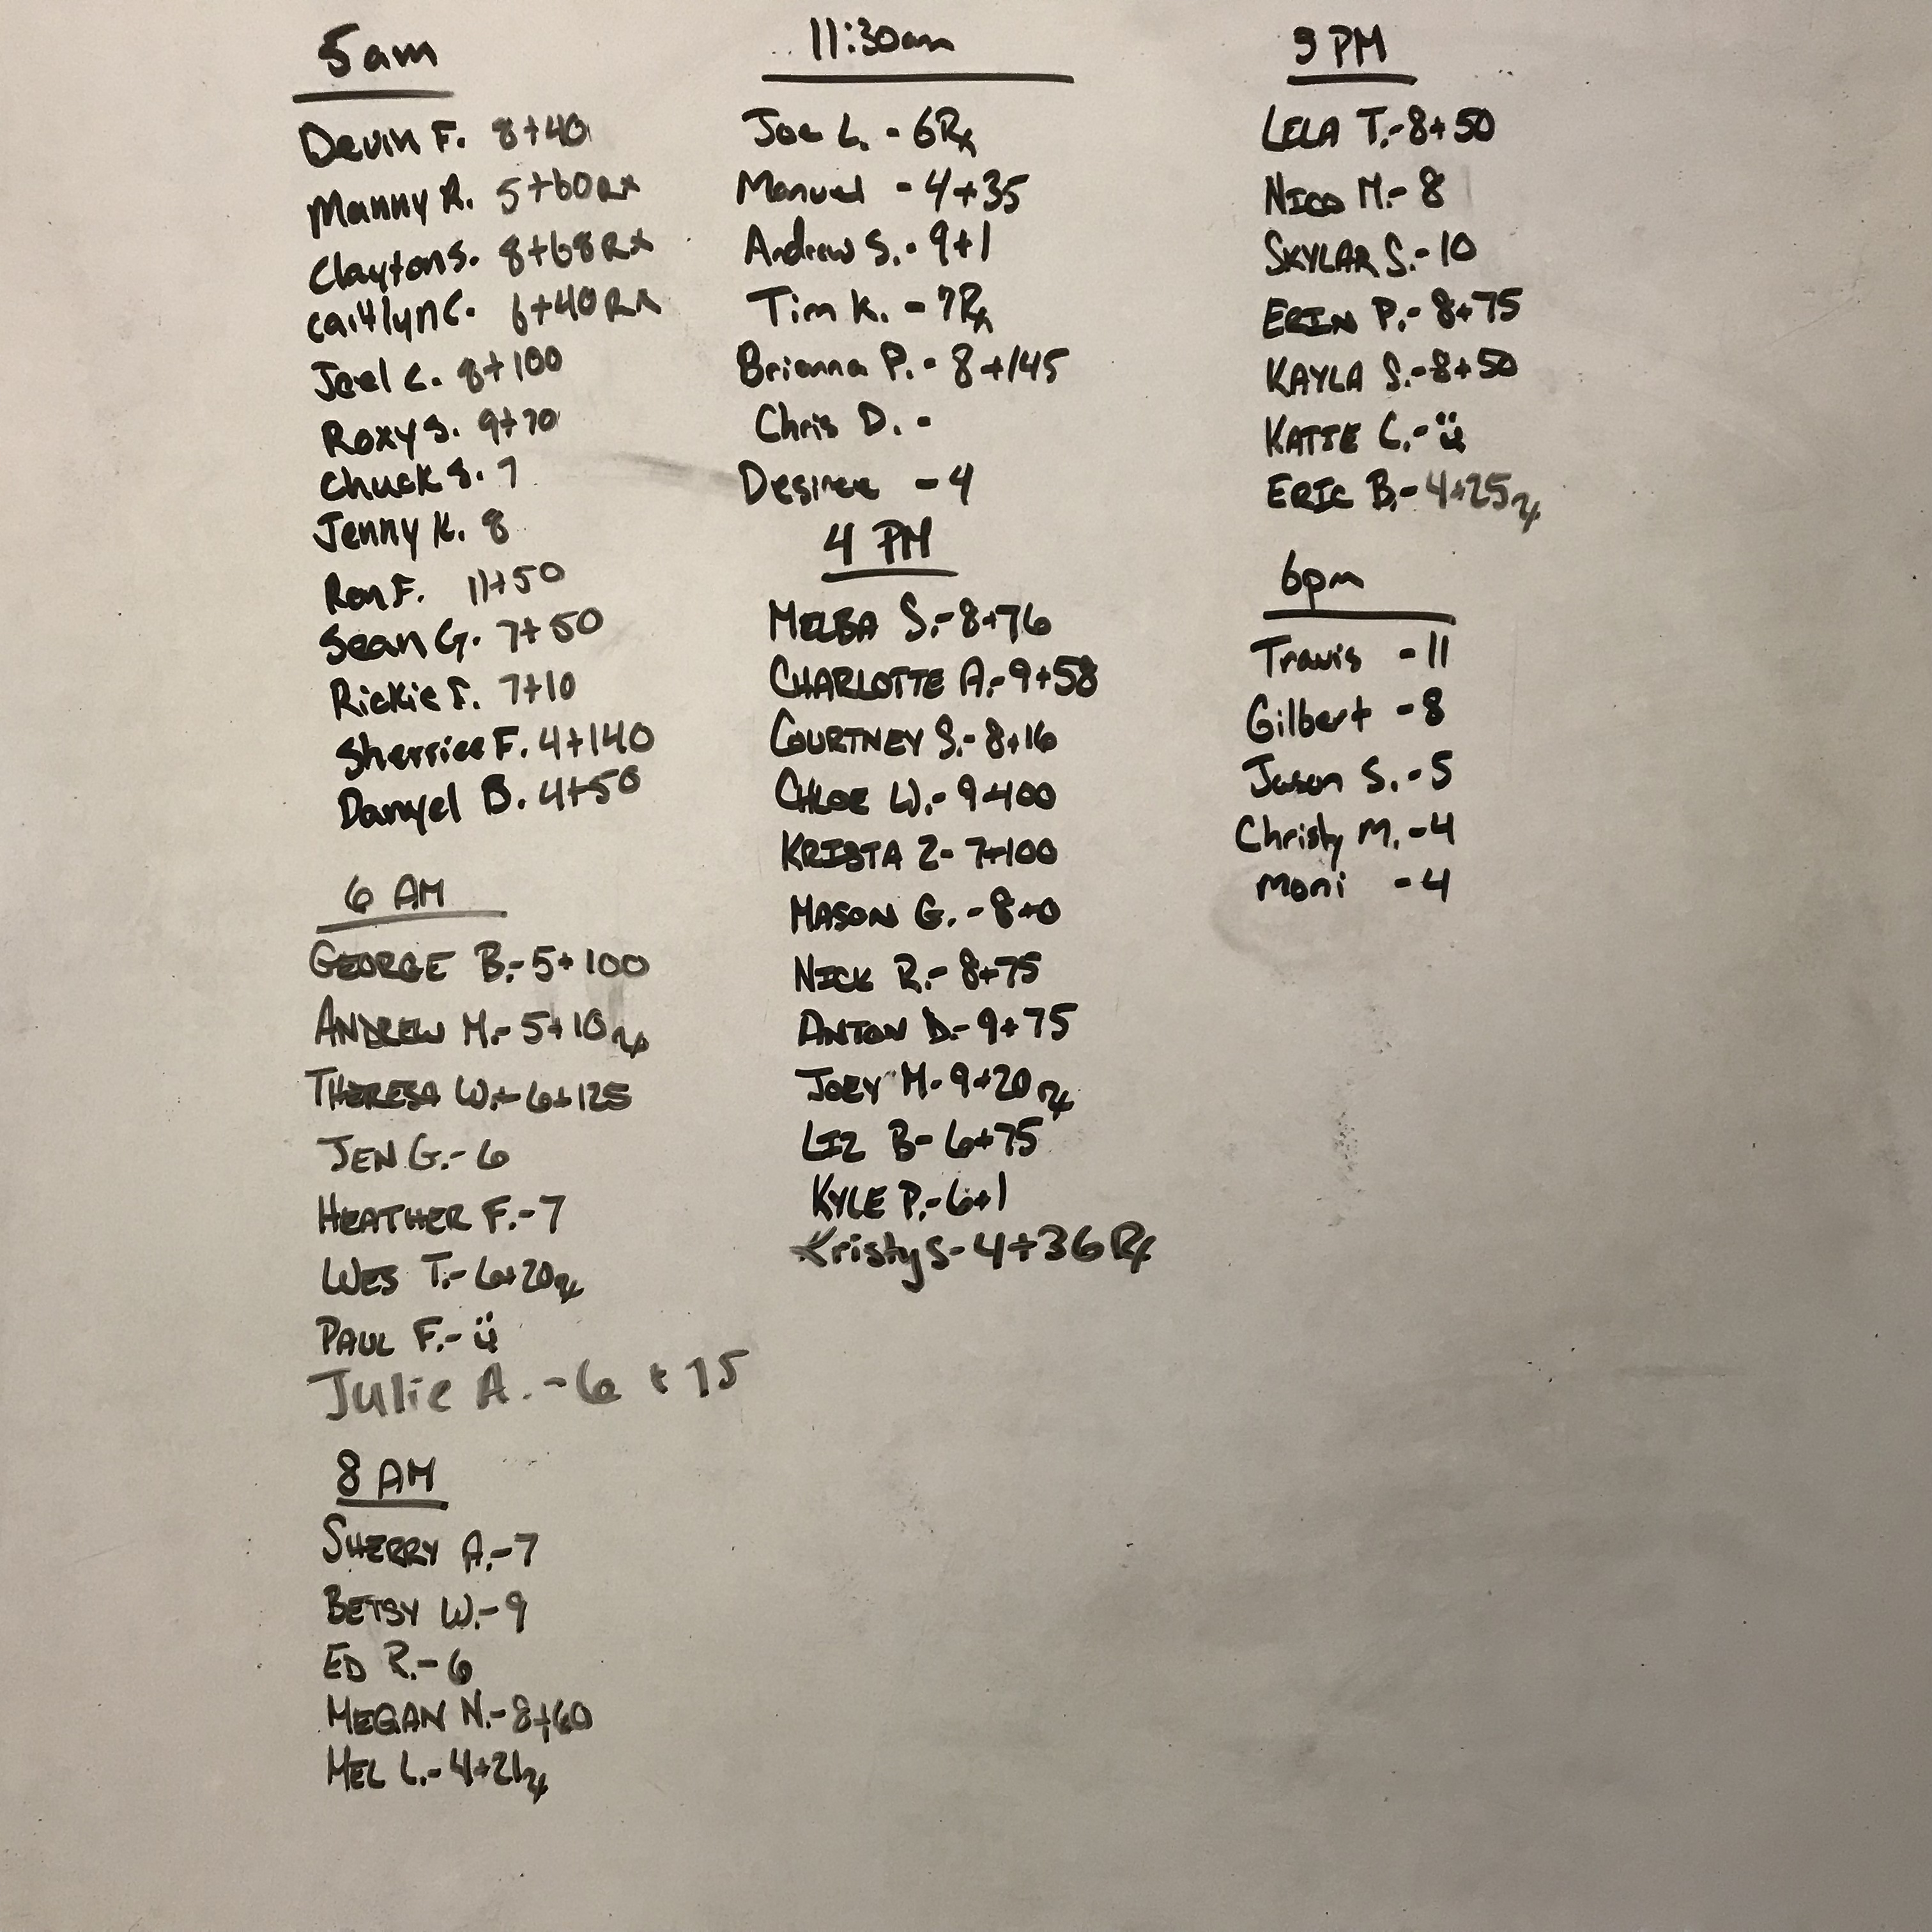 5am
Devin F. 8+40
Manny R. 5+60 Rx
Clayton S. 8+68 Rx
Caitlyn C. 6+40 Rx
Joel C. 8+100
Roxy S. 9+70
Chuck S. 7
Jenny K. 8
Ron F. 11+50
Sean G. 7+50
Rickie F. 7+10
Sherrice F. 4+140
Danyel B. 4+50
6 AM
GEORGE B.- 5+100
ANDREW M.- 5+10 rx
THERESA W.- 6+125
JEN G.- 6
HEATHER F.- 7
WES T.- 6+20 rx
PAUL F.- ü
Julie A. - 6 + 15
8 AM
SHERRY A.- 7
BETSY W.- 9
ED R.- 6
MEGAN N.- 8+60
MEL L.- 4+21 rx
11:30am
Joe L. - 6 Rx
Manuel - 4+35
Andrew S. - 9+1
Tim K. - 7 Rx
Brianna P. - 8+145
Chris D. -
Desiree - 4
4 PM
MELBA S.- 8+76
CHARLOTTE A.- 9+58
COURTNEY S.- 8+16
CHLOE W.- 9+100
KRISTA Z- 7+100
MASON G. - 8+0
NICK R.- 8+75
ANTON D.- 9+75
JOEY M- 9+20 rx
LIZ B- 6+75
KYLE P.- 6+1
Kristy S- 4+36 Rx
5 PM
LELA T.- 8+50
NICO M.- 8
SKYLAR S.- 10
ERIN P.- 8+75
KAYLA S.- 8+50
KATIE C.- ü
ERIC B.- 4+25 rx
6pm
Travis - 11
Gilbert - 8
Jason S. - 5
Christy M. - 4
Moni - 4